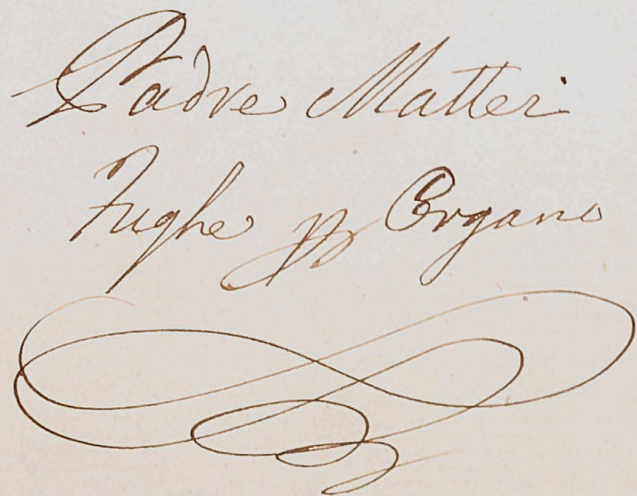 Padre Mattei
Fughe p Organo